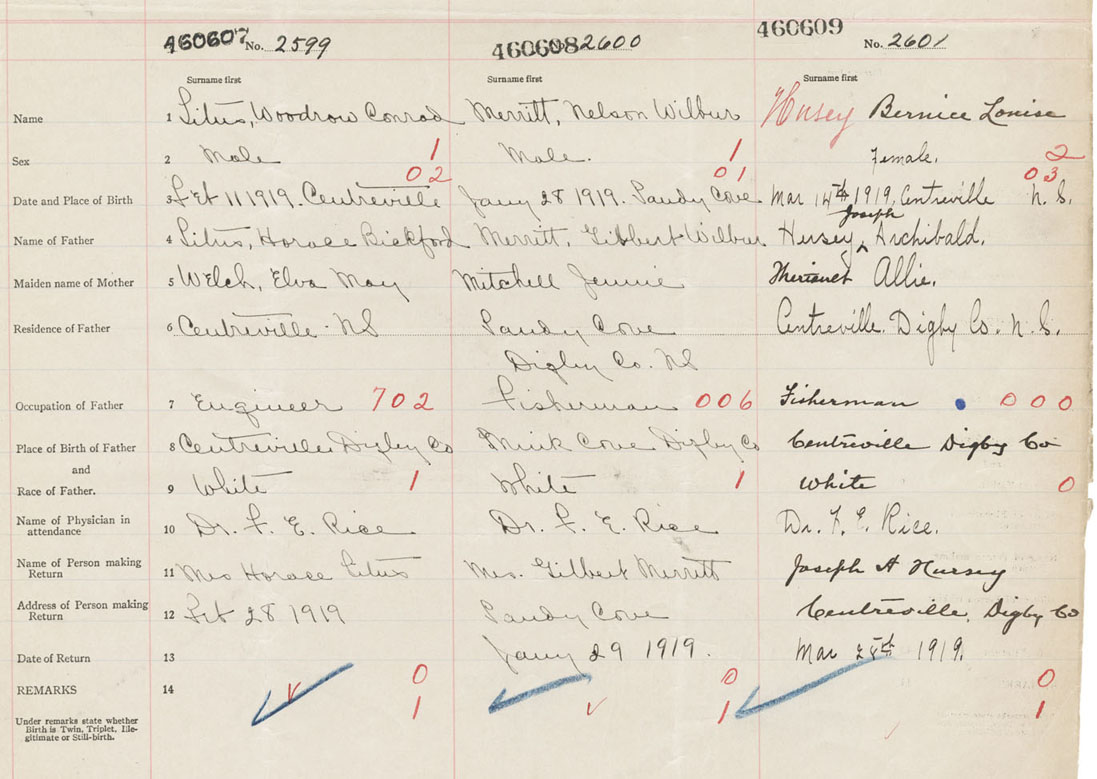 460607 No. 2599 460608 2600 460609 No. 2601
Surname first Surname first Surname first
Name 1 Titus, Woodrow Conrad Merritt, Nelson Wilbur Hersey Bernice Louise
Sex 2 Male 1 Male. 1 Female. 2
02 01 03
Date and Place of Birth 3 Feb 11 1919. Centreville Jany 28 1919. Sandy Cove Mar 14th 1919, Centreville N.S.
Joseph
Name of Father 4 Titus, Horace Bickford Merritt, Gilbert Wilbur Hersey ‸ Archibald.
Maiden name of Mother 5 Welch, Elva May Mitchell Jennie Allie.
Residence of Father 6 Centreville NS Sandy Cove Centreville, Digby Co. N.S.
Digby Co. NS
Occupation of Father 7 Engineer 702 Fisherman 006 Fisherman 000
Place of Birth of Father 8 Centreville Digby Co Mink Cove Digby Co Centreville Digby Co
and
Race of Father. 9 White 1 White 1 White 0
Name of Physician in
attendance 10 Dr. F. E. Rice Dr. F. E. Rice Dr. F. E. Rice.
Name of Person making
Return 11 Mrs Horace Titus Mrs. Gilbert Merritt Joseph A Hersey
Address of Person making
Return 12 Feb 28 1919 Sandy Cove Centreville, Digby Co
Date of Return 13 Jany 29 1919. Mar 1919.
REMARKS 14 0 0 0
Under remarks state whether
Birth is Twin, Triplet, Ille-
gitimate or Still-birth. 1 1 1